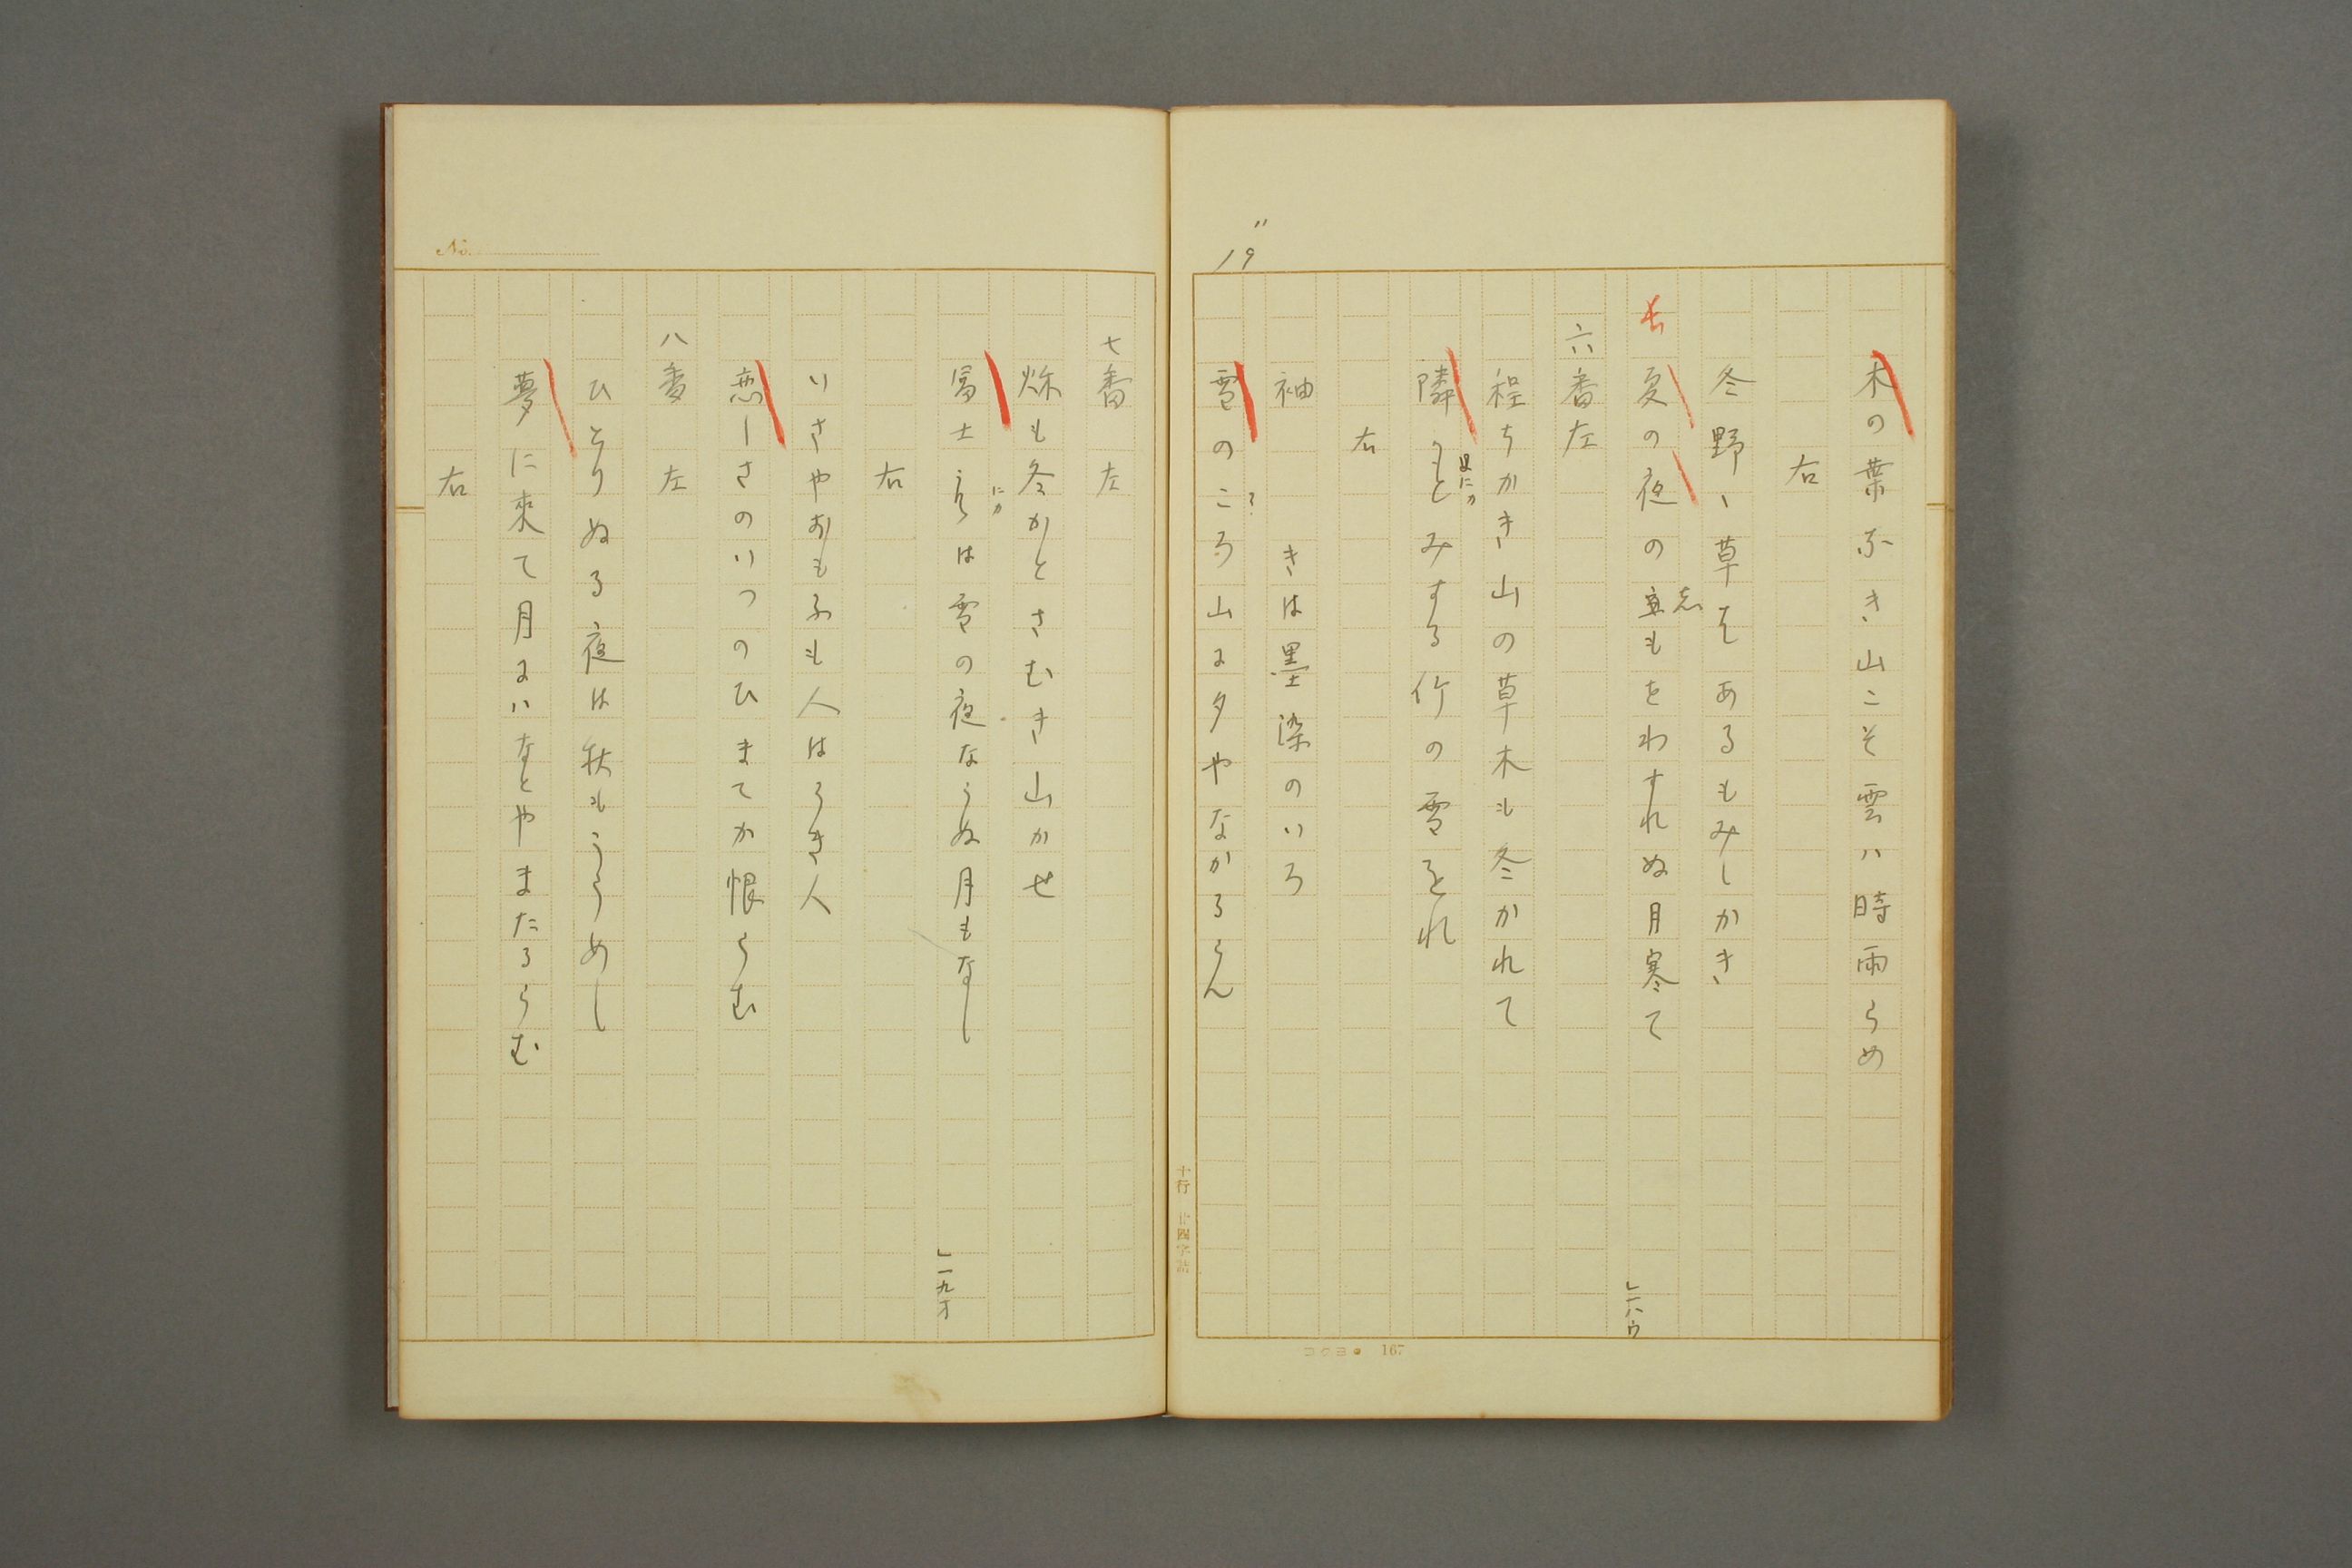 木の葉なき山こそ雲ハ時雨らめ
右
冬野ゝ草そあるもみしかき
夏の夜の
志
もをわすれぬ月寒て
」一八ウ
六番左
程ちかき山の草木も冬かれて
隣
みする竹の雪をれ
右
袖　きは墨染のいろ
雪のころ山に夕やなかるらん
?
〃
19
十行 廿四字詰
コクヨ 167
七番　左
秌も冬かとさむき山かせ
冨士
は雪の夜ならぬ月もなし
にカ
」一九オ
右
いさやおもふも人はうき人
恋しさのいつのひまてか恨らむ
八番　左
ひとりぬる夜は秋もうらめし
夢に来て月にハなとやまたるらむ
右
No.